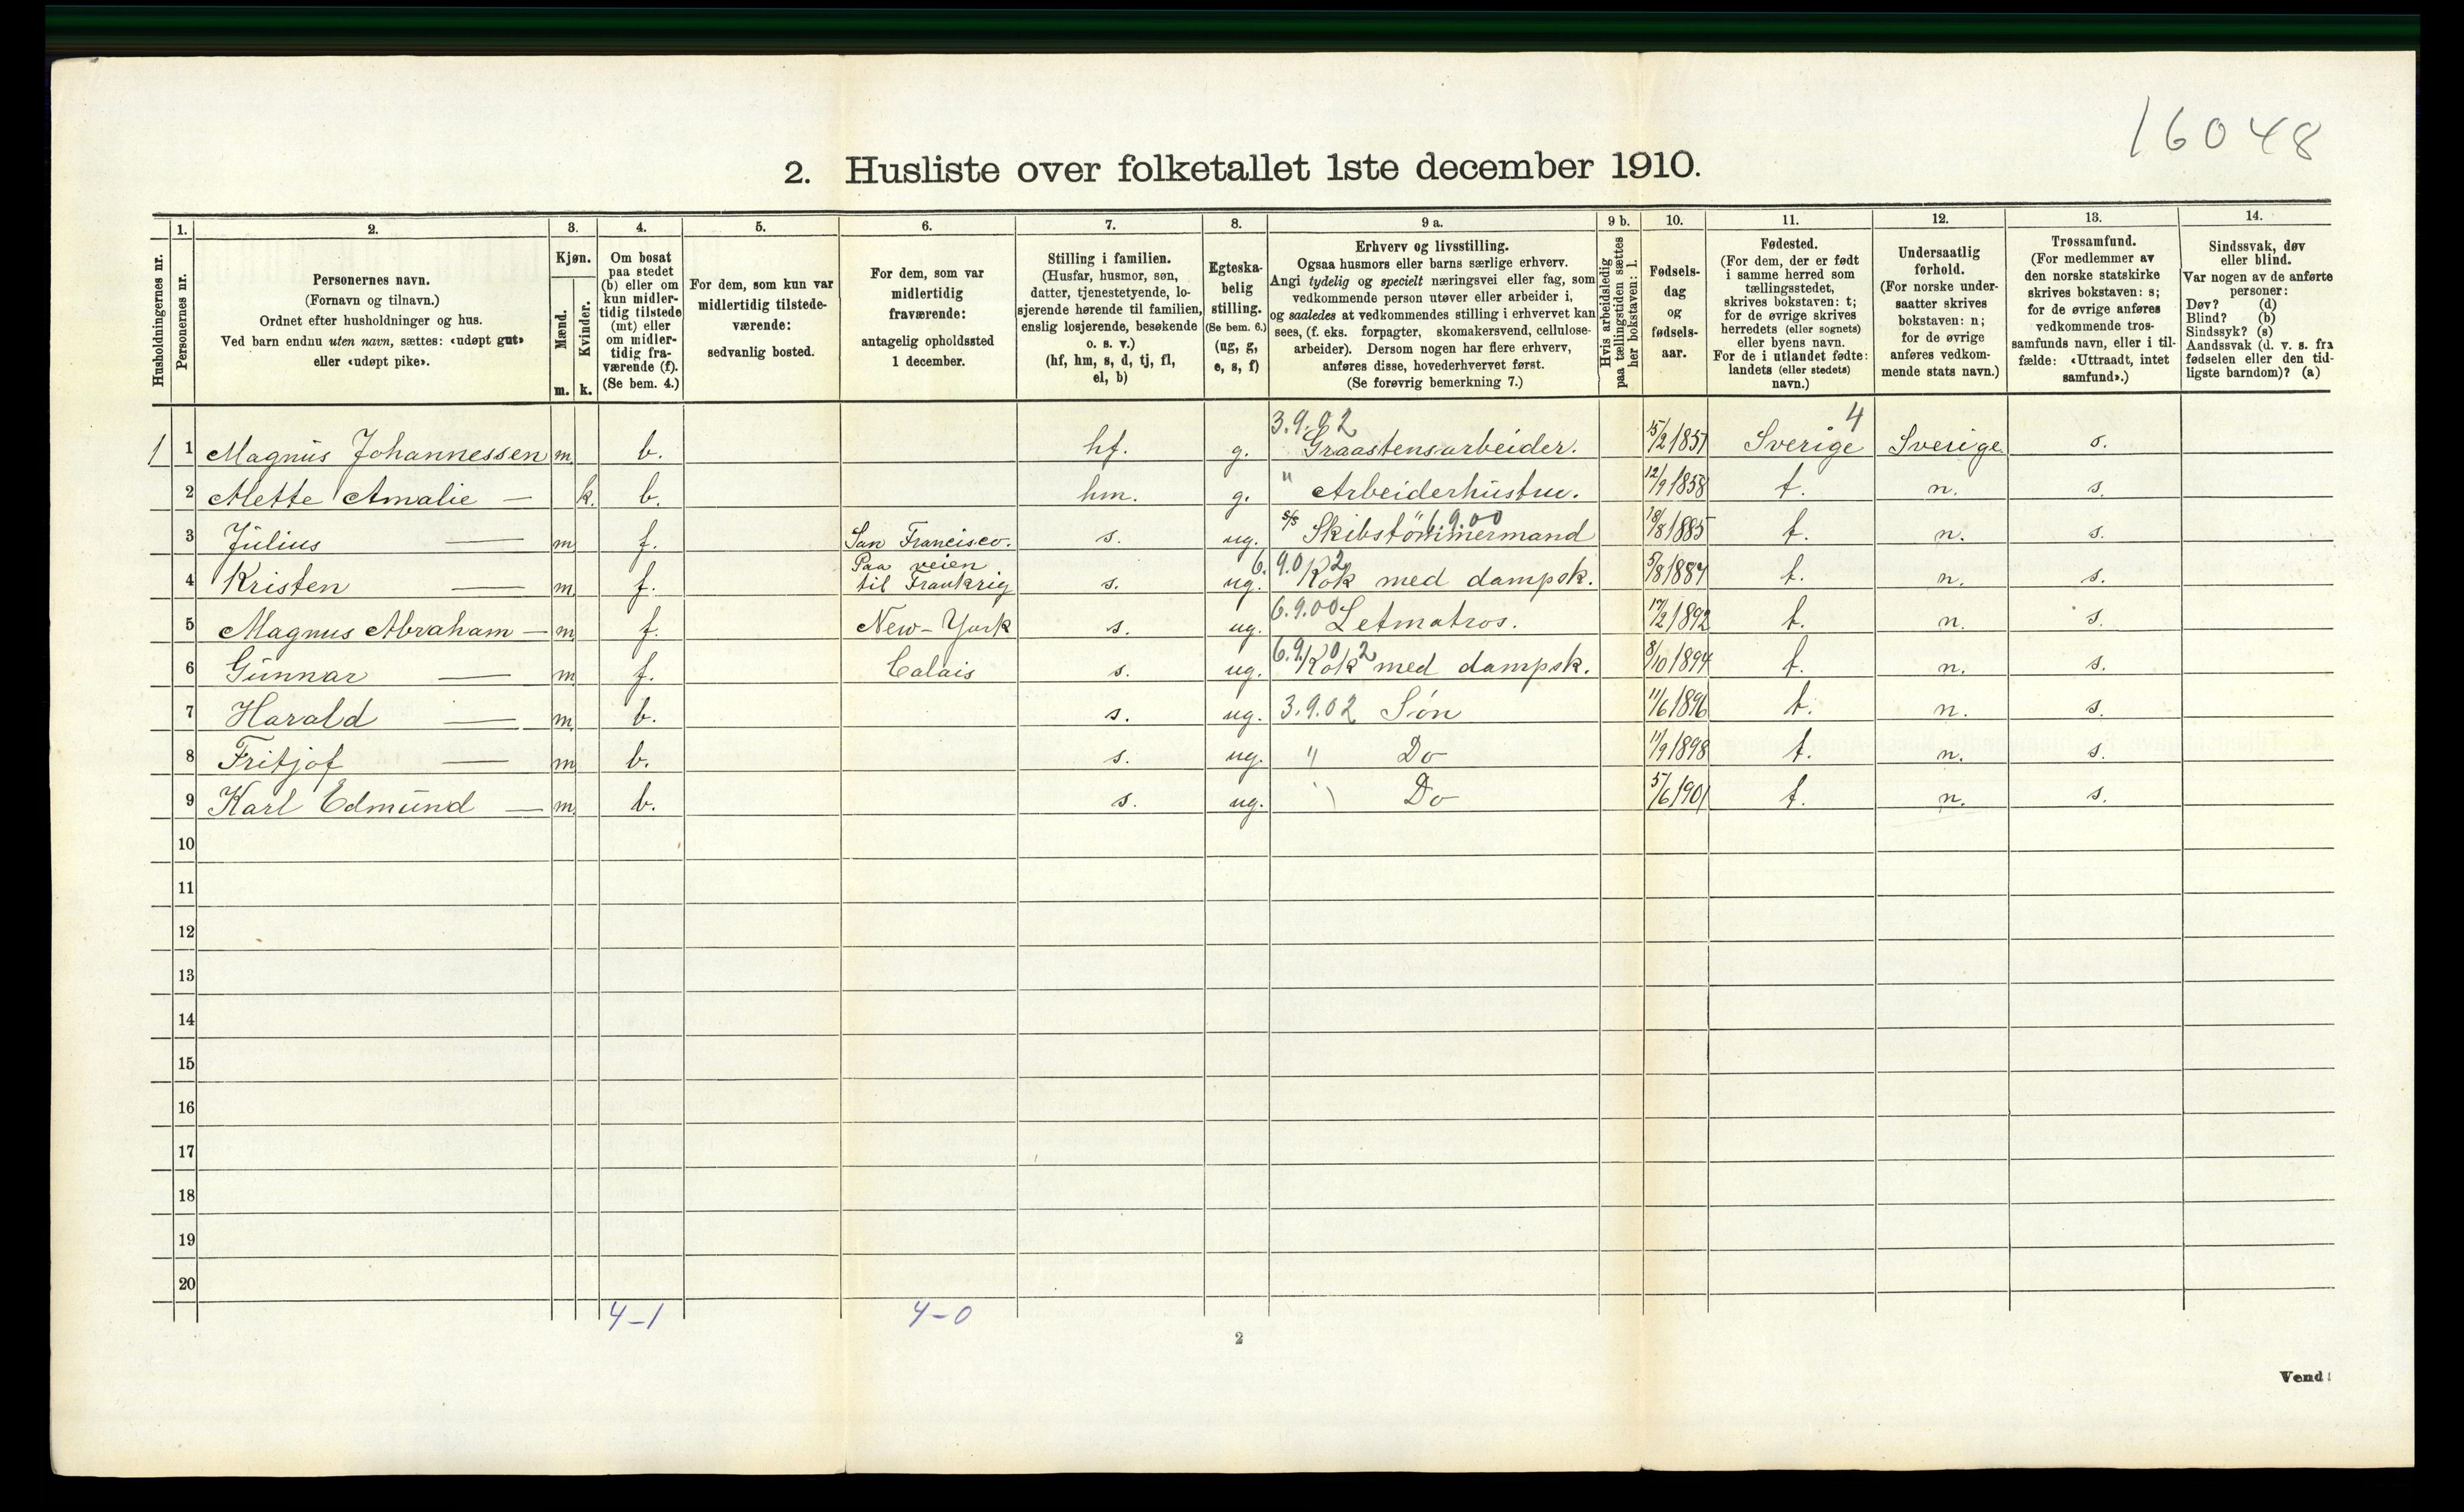 16048
2. Husliste over folketallet 1ste december 1910.
Husholdningernes nr.
1.
Personernes nr.
2.
Personernes navn.
(Fornavn og tilnavn.)
Ordnet efter husholdninger og hus.
Ved barn endnu uten navn, sættes: «udøpt gut»
eller «udøpt pike».
3.
Kjøn.
Mænd.
Kvinder.
m. k.
4.
Om bosat
paa stedet
(b) eller om
kun midler-
tidig tilstede
(mt) eller
om midler-
tidig fra-
værende (f).
(Se bem. 4.)
5.
For dem, som kun var
midlertidig tilstede-
værende:
sedvanlig bosted.
6.
For dem, som var
midlertidig
fraværende:
antagelig opholdssted
1 december.
7.
Stilling i familien.
(Husfar, husmor, søn,
datter, tjenestetyende, lo-
sjerende hørende til familien,
enslig losjerende, besøkende
o. s. v.)
(hf, hm, s, d, tj, fl,
el, b)
8.
Egteska-
belig
stilling.
(Se bem. 6.)
(ug, g,
e, s, f)
9 a.
Erhverv og livsstilling.
Ogsaa husmors eller barns særlige erhverv.
Angi tydelig og specielt næringsvei eller fag, som
vedkommende person utøver eller arbeider i,
og saaledes at vedkommendes stilling i erhvervet kan
sees, (f. eks. forpagter, skomakersvend, cellulose-
arbeider). Dersom nogen har flere erhverv,
anføres disse, hovederhvervet først.
(Se forøvrig bemerkning 7.)
9 b.
Hvis arbeidsledig
paa tællingstiden sættes
her bokstaven: l.
10.
Fødsels-
dag
og
fødsels-
aar.
11.
Fødested.
(For dem, der er født
i samme herred som
tællingsstedet,
skrives bokstaven: t;
for de øvrige skrives
herredets (eller sognets)
eller byens navn.
For de i utlandet fødte:
landets (eller stedets)
navn.)
12.
Undersaatlig
forhold.
(For norske under-
saatter skrives
bokstaven: n;
for de øvrige
anføres vedkom-
mende stats navn.)
13.
Trossamfund.
(For medlemmer av
den norske statskirke
skrives bokstaven: s;
for de øvrige anføres
vedkommende tros-
samfunds navn, eller i til-
fælde: «Uttraadt, intet
samfund».)
14.
Sindssvak, døv
eller blind.
Var nogen av de anførte
personer:
Døv? (d)
Blind? (b)
Sindssyk? (s)
Aandssvak (d. v. s. fra
fødselen eller den tid-
ligste barndom)? (a)
3.9.02 4
1 1 Magnus Johannessen m b. hf. g. Graastensarbeider. 15/2 1851 Sverige Sverige s.
2 Mette Amalie — k. b. hm. g. " Arbeiderhustru. 12/9 1858 t. n. s.
3 Julius — m f. San Francisco. s. ug. s/s Skibstömmermand " 6.9.00 18/8 1885 t. n. s.
4 Kristen — m f. Paa veien til Frankrig s. ug. 6.9.02 Kok med dampsk. 5/8 1887 t. n. s.
5 Magnus Abraham — m f. New-York s. ug. 6.9.00 Letmatros. 17/2 1892 t. n. s.
6 Gunnar — m f. Calais s. ug. 6.9.02 Kok med dampsk. 8/10 1894 t. n. s.
7 Harald — m b. s. ug. 3.9.02 Søn 11/6 1896 t. n. s.
8 Fritjof — m b. s. ug. " Do 11/9 1898 t. n. s.
9 Karl Edmund — m b. s. ug. " Do 5/6 1901 t. n. s.
10
11
12
13
14
15
16
17
18
19
20
4-1 4-0
2
Vend!